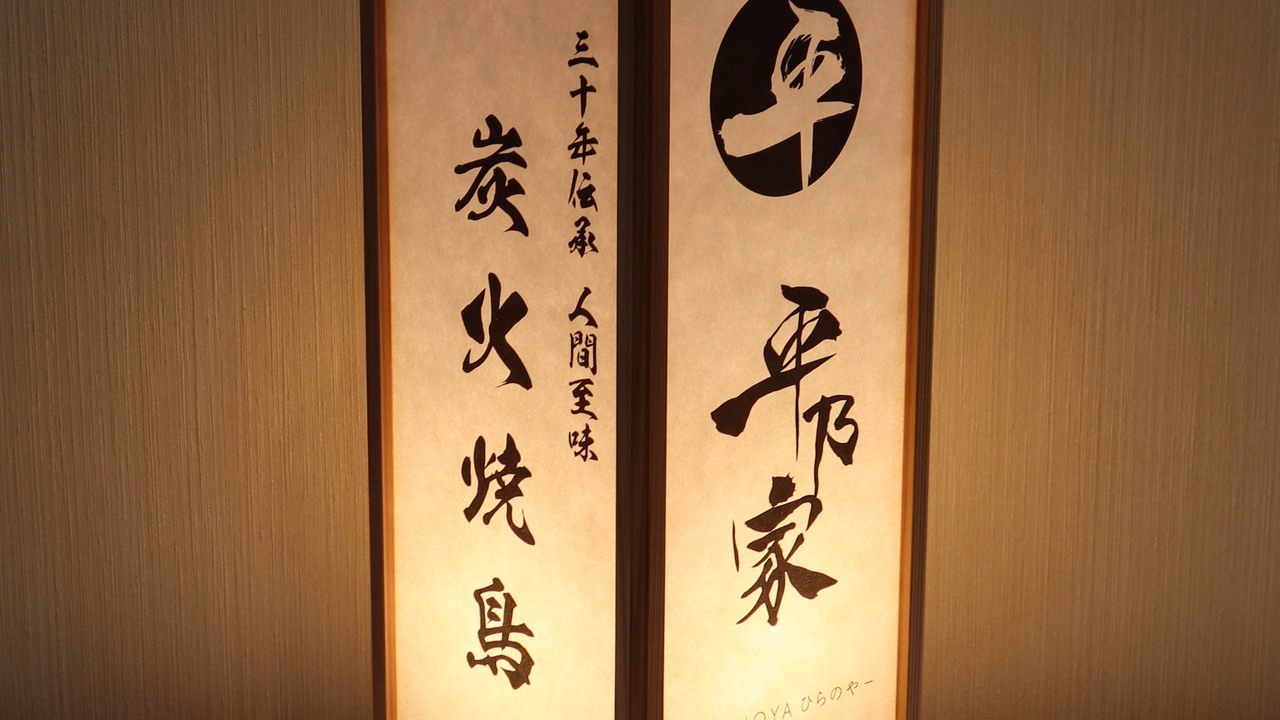 平
平乃家
OYA ひらのやー
三十年伝承 人間至味
炭火焼鳥